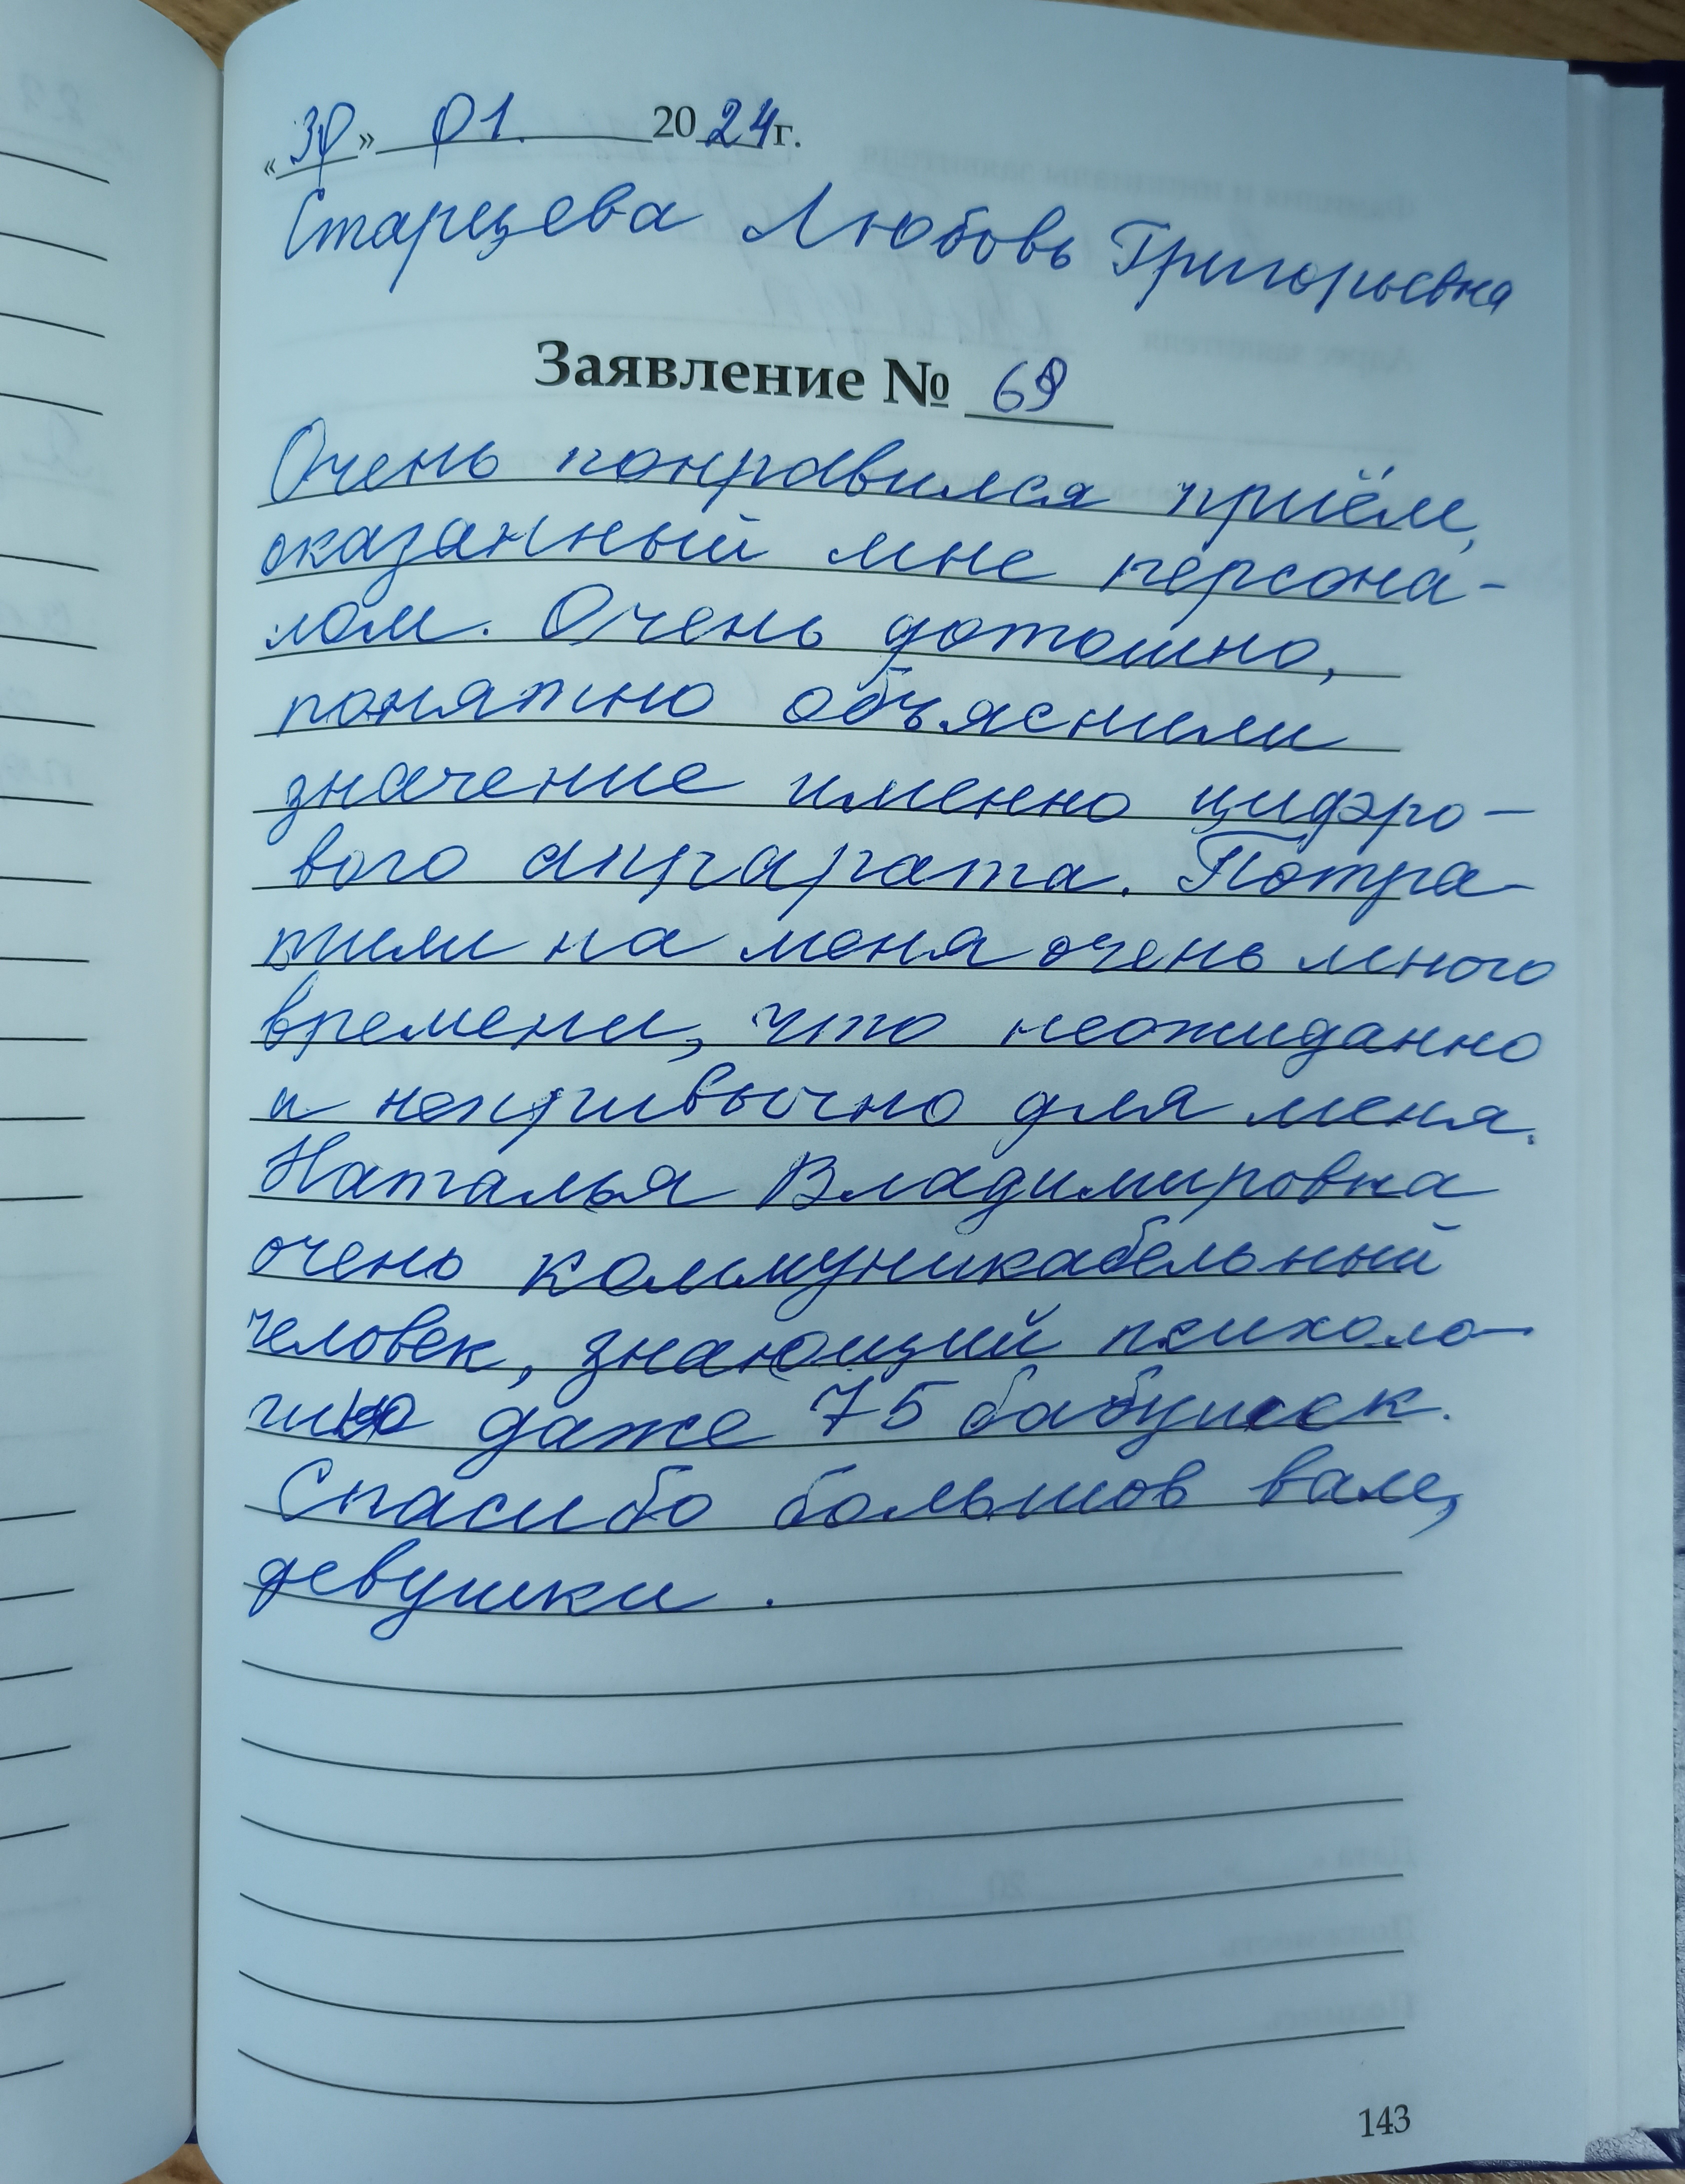 «30» 01. 2024г.
Старцева Любовь Григорьевна
Заявление № 69
Очень понравился приём,
оказанный мне персона-
лом. Очень дотошно,
понятно объяснили
значение именно цифро-
вого аппарата. Потра-
тили на меня очень много
времени, что неожиданно
и непривычно для меня.
Наталья Владимировна
очень коммуникабельный
человек, знающий психоло-
гию даже 75 бабушек.
Спасибо большое вам,
девушки.
143